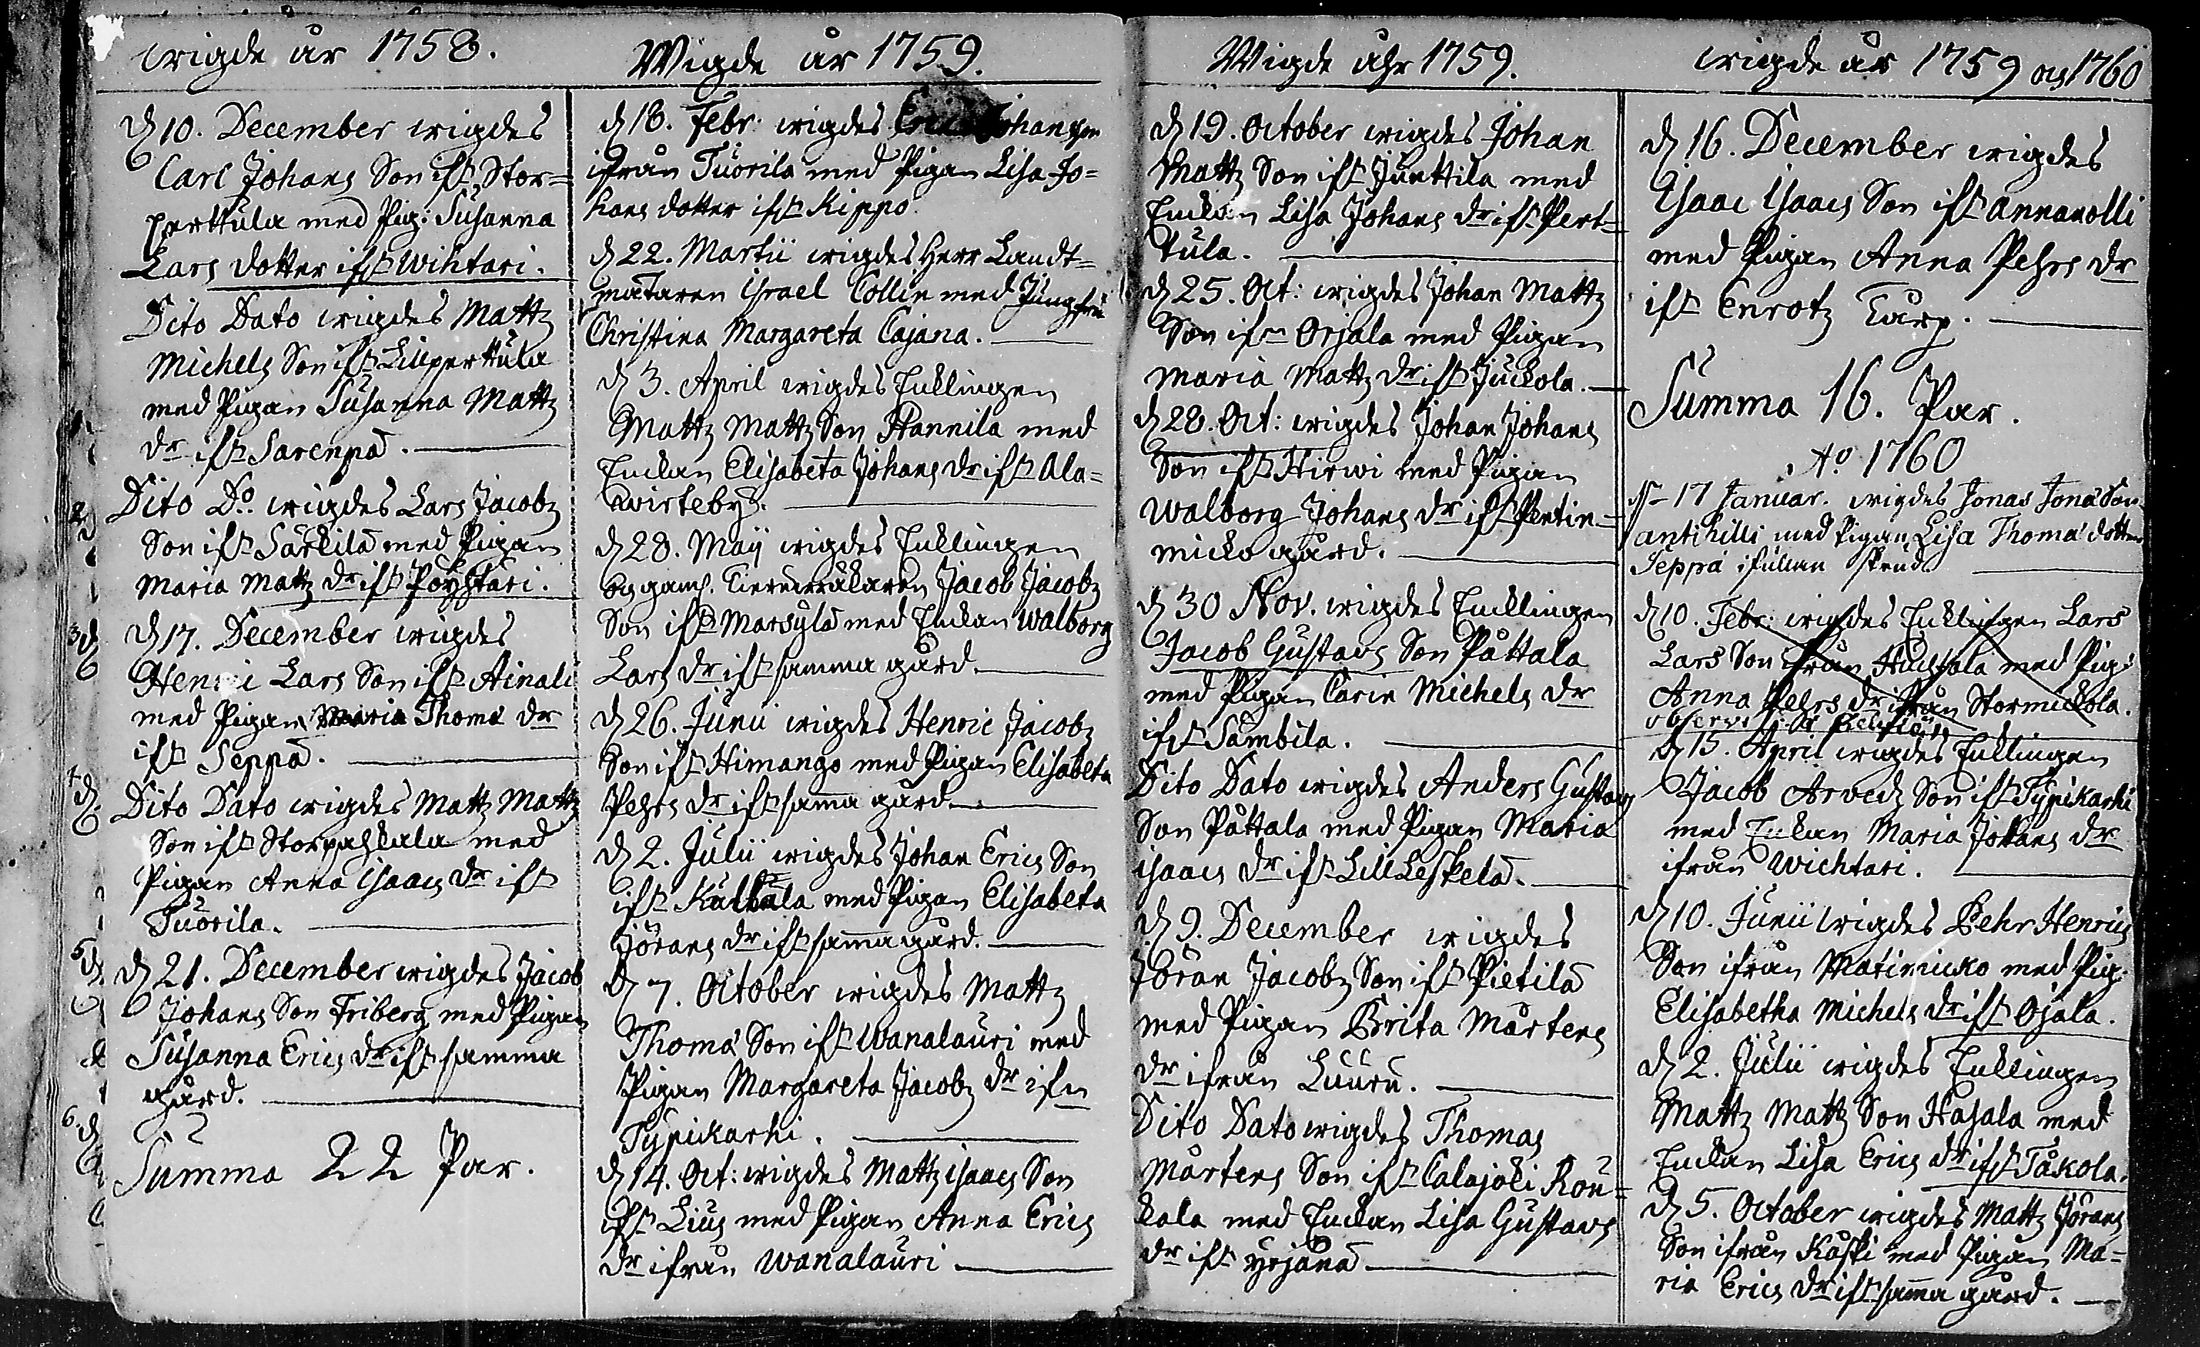 wigde år 1758.
d 10. December wigdes
Carl Johans Son ifr Stor=
perttula med Pig: Susanna
Lars dotter ifr Wihtari.
Dito Dato wigdes Matts
Michels Son ifr Lillperttula
med Pigan Susanna Matts
dr ifr Sarenpä.
Dito Do wigdes Lars Jacobs
Son ifr Särkilä med Pigan
Maria Matts dr ifr Pöyhtäri.
d 17. December wigdes
Henric Lars Son ifr Ainali
med Pigan Maria Thoma dr
ifr Seppä.
Dito Dato wigdes Matts Matts
Son ifr Storpaskala med
Pigan Anna Isaacs dr ifr
Tuorila.
d 21. December wigdes Jacob
Johans Son Friberg med Pigan
Susanna Erics dr ifr samma
gård.
Summa 22 Par.
Wigde år 1759.
d 18. Febr: wigdes Eric Johansson
ifrån Tuorila med Pigan Lisa Jo=
hans dotter ifr Kippo.
d 22. Martii wigdes Herr Landt=
mätaren Israel Collin med Jungfru
Christina Margareta Cajana.
d 3. April wigdes Enklingen
Matts Matts Son Hannila med
Enckan Elisabeta Johans dr ifr Ala=
wirteby.
d 28. Maij wigdes Enklingen
og gaml. Jacob Jacobs
Son ifr Marsylä med Enckan Walborg
Lars dr ifr samma gård.
d 26. Junii wigdes Henric Jacobs
Son ifr Himango med Pigan Elisabeta
Pehrs dr ifr samma gård.
d 2. Julii wigdes Johan Erics Son
ifr med Pigan Elisabeta
Jörans dr ifr samma gård.
d 7. October wigdes Matts
Thoma Son ifr Wanalauri med
Pigan Margareta Jacobs dr ifn
Typickarhi.
d 14. Oct: wigdes Matts Isaacs Son
ifr Lius med Pigan Anna Erics
dr ifrån Wanalauri
Wigde åhr 1759.
d 19. October wigdes Johan
Matts Son ifr Junttila med
Enckan Lisa Johans dr ifr Pert=
tula.
d 25. Oct: wigdes Johan Matts
Son ifrn Orjala med Pigan
Maria Matts dr ifr Juckola.
d 28. Oct: wigdes Johan Johans
Son ifr Hirwi med Pigan
Walborg Johans dr ifr Pentin=
micko gård.
d 30 Nov. wigdes Encklingen
Jacob Gustavs Son Påttala
med Pigan Carin Michels dr
ifr Sämbilä.
Dito Dato wigdes Anders Gustavs
Son Påttala med Pigan Maria
Isaacs dr ifr Lill Leskelä.
d 9. December wigdes
Jöran Jacobs Son ifr Pietilä
med Pigan Brita Mårtens
dr ifrån Luuru.
Dito Dato wigdes Thomas
Mårtens Son ifr Calajoki Rou=
kala med Enckan Lisa Gustavs
dr ifr yrjänä
wigde år 1759 og 1760
d 16. December wigdes
Isaac Isaacs Son ifr Annanolli
med Pigan Anna Pehrs dr
ifr Enrots Torp.
Summa 16. Par.
Ao 1760
d 17 Januar. wigdes Jonas Jona Son
antihilli med Pigan Lisa Thoma dotter
Seppä
d 10. Febr: wigdes Enklingen Lars
Lars Son ifrån med Pig:
Anna Pehrs dr ifrån Stormickola.
d 15. April wigdes Enklingen
Jacob Arveds Son ifr Typikarhi
med Enckan Maria Johans dr
ifrån Wichtari.
d 10. Junii wigdes Pehr Henrics
Son ifrån Matinicko med Pig.
Elisabetha Michels dr ifr Ojala.
d 2. Julii wigdes Enklingen
Matts Matts Son Hasala med
Enckan Lisa Erics dr ifr Tåkola.
d 5. October wigdes Matts Jörans
Son ifrån Koski med Pigan Ma=
ria Erics dr ifr samma gård.